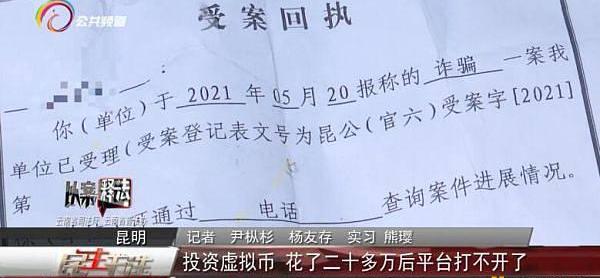 公共频道
受案回执
你(单位)于 2021 年 05 月 20 报称的 诈骗 一案我
单位已受理(受案登记表文号为昆公(官六)受案字[2021]
第
通过 电话 查询案件进展情况。
以案释法
昆明
记者 尹枞杉 杨友存 实习 熊璎
民生说法
投资虚拟币 花了二十多万后平台打不开了